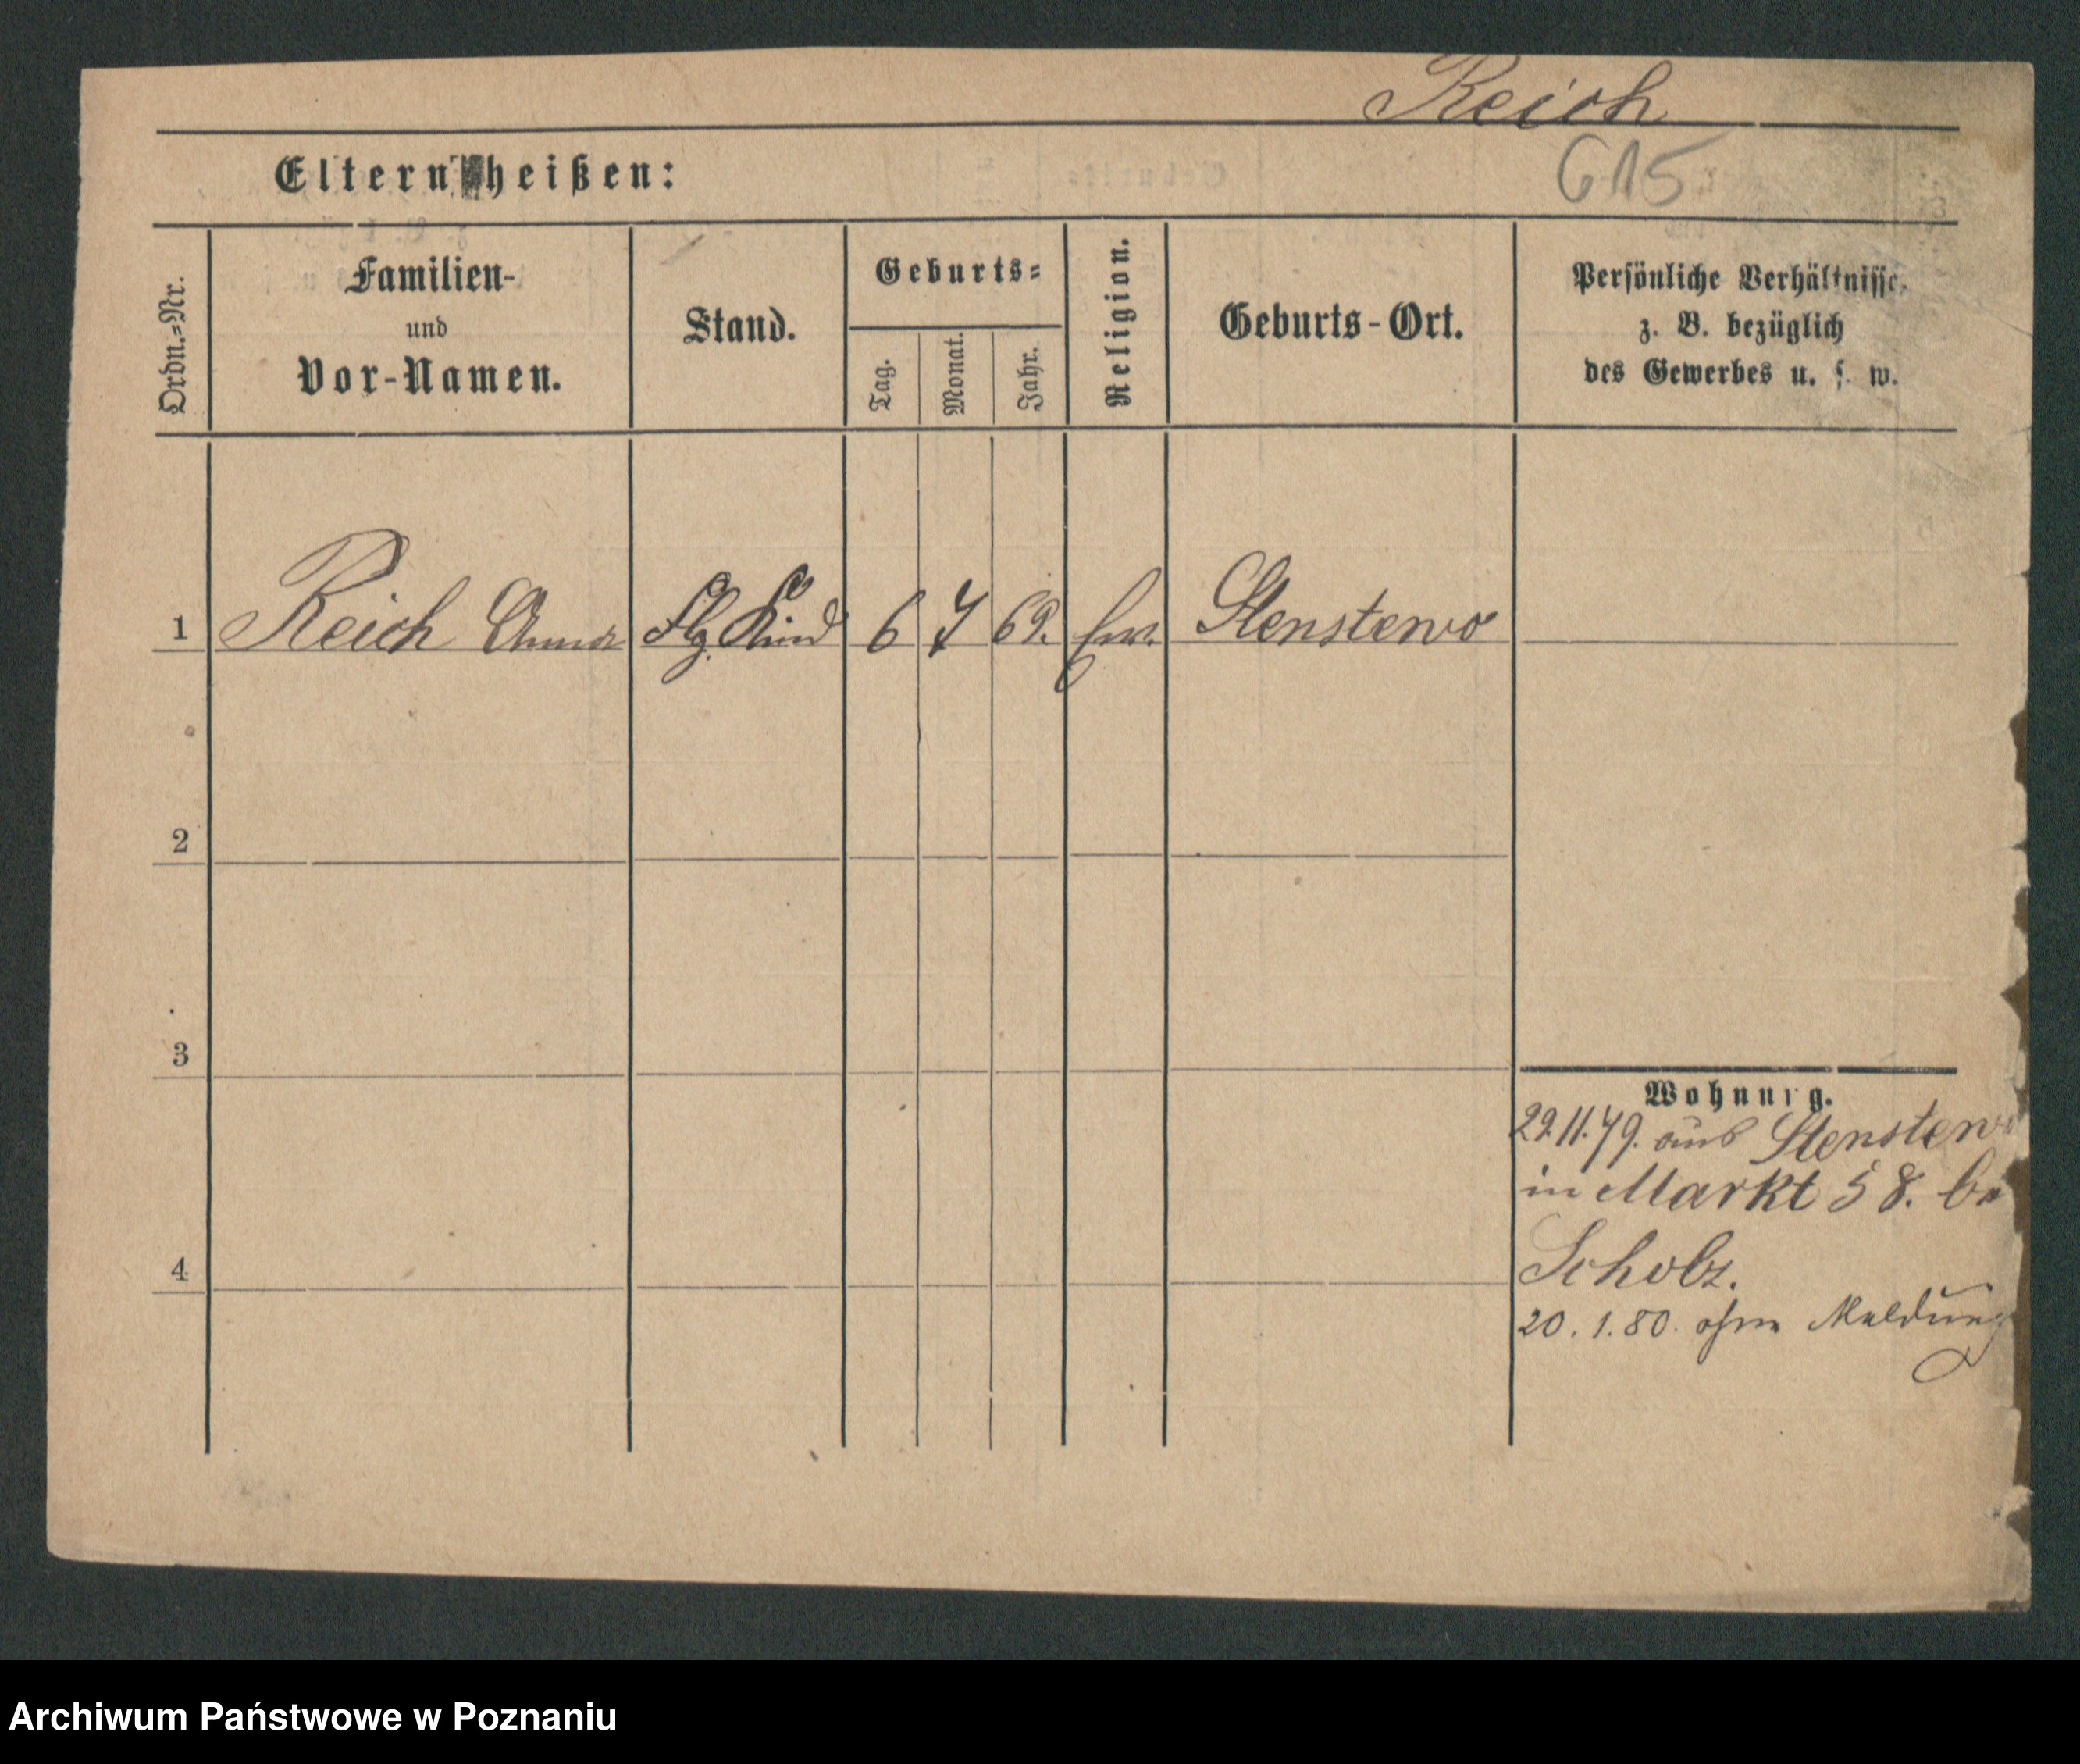 Reich
Eltern heißen:
615
Ordn.=Nr.
Familien-
und
Vor-Namen.
Stand.
Geburts=
Tag.
Monat.
Jahr.
Religion.
Geburts-Ort.
Persönliche Verhältnisse,
z. B. bezüglich
des Gewerbes u. s. w.
1 Reich Anna Pflg. Kind 6 7 69. ev. Stenstewo
2
3
4
Wohnung.
29.11.79. aus Stenstewo
in Markt 58. bei
Scholz.
20.1.80. ohne Meldung
Archiwum Państwowe w Poznaniu